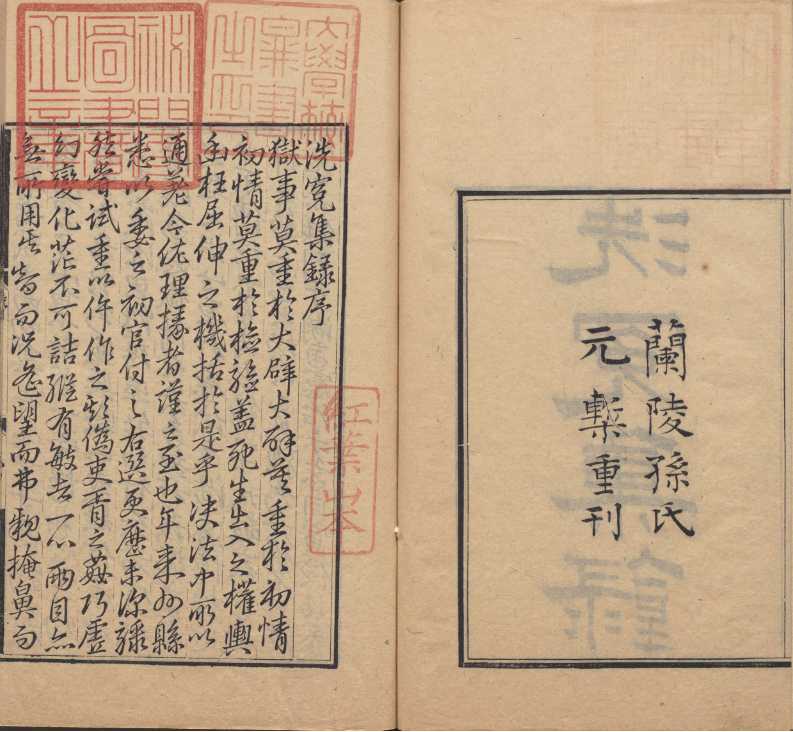 蘭陵孫氏
元槧重刊
大學校
圖書
之印
秘閣
圖書
之章
紅葉山本
洗冤集録序
獄事莫重於大辟大辟莫重於初情
初情莫重於檢驗盖死生出入之權輿
幽枉屈伸之機括於是乎决法中所以
通差令佐理掾者謹之至也年来州縣
悉以委之初官付之右選更歷未深驟
然嘗試重以仵作之欺僞吏胥之姦巧虛
幻變化茫不可詰縱有敏者一心兩目亦
無所用其智而况遙望而弗親掩鼻而